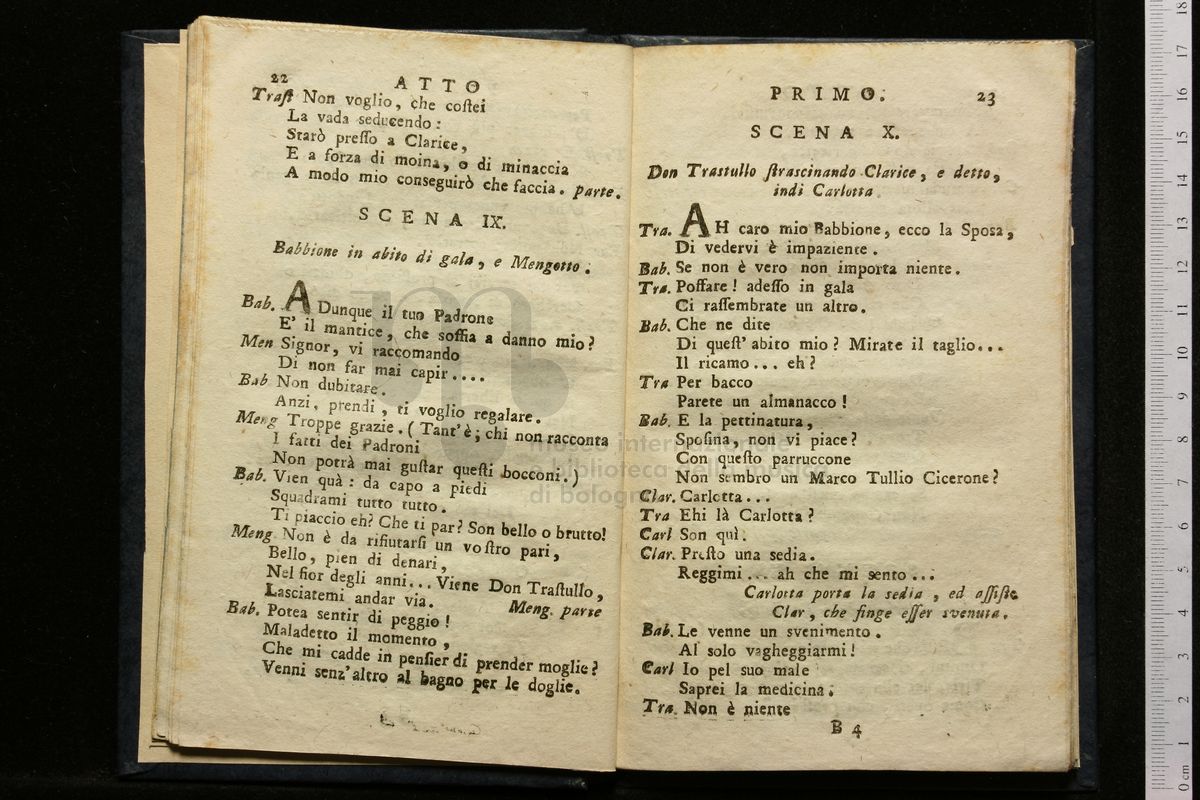 22 ATTO
Trast Non voglio, che costei
La vada seducendo:
Starò presso a Clarice,
E a forza di moina, o di minaccia
A modo mio conseguirò che faccia. parte.
SCENA IX.
Babbione in abito di gala, e Mengotto.
Bab. ADunque il tuo Padrone
E' il mantice, che soffia a danno mio?
Men Signor, vi raccomando
Di non far mai capir....
Bab Non dubitare.
Anzi, prendi, ti voglio regalare.
Meng Troppe grazie. (Tant' è; chi non racconta
I fatti dei Padroni
Non potrà mai gustar questi bocconi.)
Bab. Vien quà: da capo a piedi
Squadrami tutto tutto.
Ti piaccio eh? Che ti par? Son bello o brutto!
Meng. Non è da rifiutarsi un vostro pari,
Bello, pien di denari,
Nel fior degli anni... Viene Don Trastullo,
Lasciatemi andar via. Meng. parte
Bab. Potea sentir di peggio!
Maladetto il momento,
Che mi cadde in pensier di prender moglie?
Venni senz' altro al bagno per le doglie.
PRIMO. 23
SCENA X.
Don Trastullo strascinando Clarice, e detto,
indi Carlotta.
Tra. AH caro mio Babbione, ecco la Sposa,
Di vedervi è impaziente.
Bab. Se non è vero non importa niente.
Tra. Possare! adesso in gala
Ci rassembrate un altro.
Bab. Che ne dite
Di quest' abito mio? Mirate il taglio...
Il ricamo... eh?
Tra Per bacco
Parete un almanacco!
Bab. E la pettinatura,
Sposina, non vi piace?
Con questo parruccone
Non sembro un Marco Tullio Cicerone?
Clar. Carlotta...
Tra Ehi là Carlotta?
Carl Son quì.
Clar. Presto una sedia.
Reggimi... ah che mi sento...
Carlotta porta la sedia, ed assiste
Clar, che finge esser svenuta.
Bab. Le venne un svenimento.
Al solo vagheggiarmi!
Carl Io pel suo male
Saprei la medicina.
Tra. Non è niente
B 4
museo internazionale
e biblioteca della musica
di bologna
0 cm 1 2 3 4 5 6 7 8 9 10 11 12 13 14 15 16 17 18